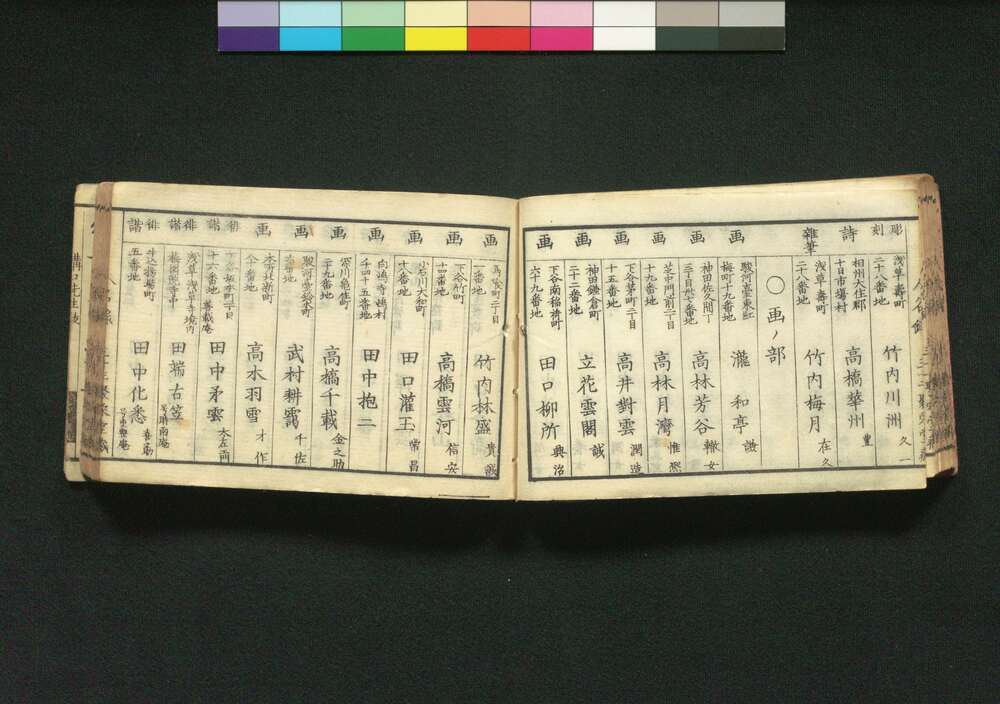 彫刻
浅草壽町
二十八番地
竹内川洲
久一
詩
相州大住郡
十日市場村
高橋華州
重
雜筆
浅草壽町
二十八番地
竹内梅月
在久
〇画ノ部
画
駿河臺東紅
梅町十九番地
瀧和亭
謙
画
神田佐久間丁
三丁目卅七番地
高林芳谷
轍女
画
芝片門前二丁目
十九番地
高林月灣
惟
画
下谷茅町二丁目
十五番地
高井對雲
潤造
画
神田鎌倉町
二十二番地
立花雲閣
誠
画
下谷南稲荷町
六十九番地
田口柳所
興治
画
馬喰町二丁目
一番地
竹内林盛
画
下谷竹町
十四番地
高橋雲河
信安
画
小石川大和町
十八番地
田口灌玉
常昌
画
向流寺嶋村
千四十五番地
田中抱二
画
深川亀住町
三十九番地
高橋千載
金之助
画
駿河臺鈴木町
番地
武村耕靄
千佐
画
本芳廿浙町
番地
高水羽雪
才作
俳諧
丁目
十六番地
田中矛雲
大左
俳諧
浅草浅草寺境内
田端古笠
俳諧
牛込揚場町
五番地
田中化悉
喜
溝口先生